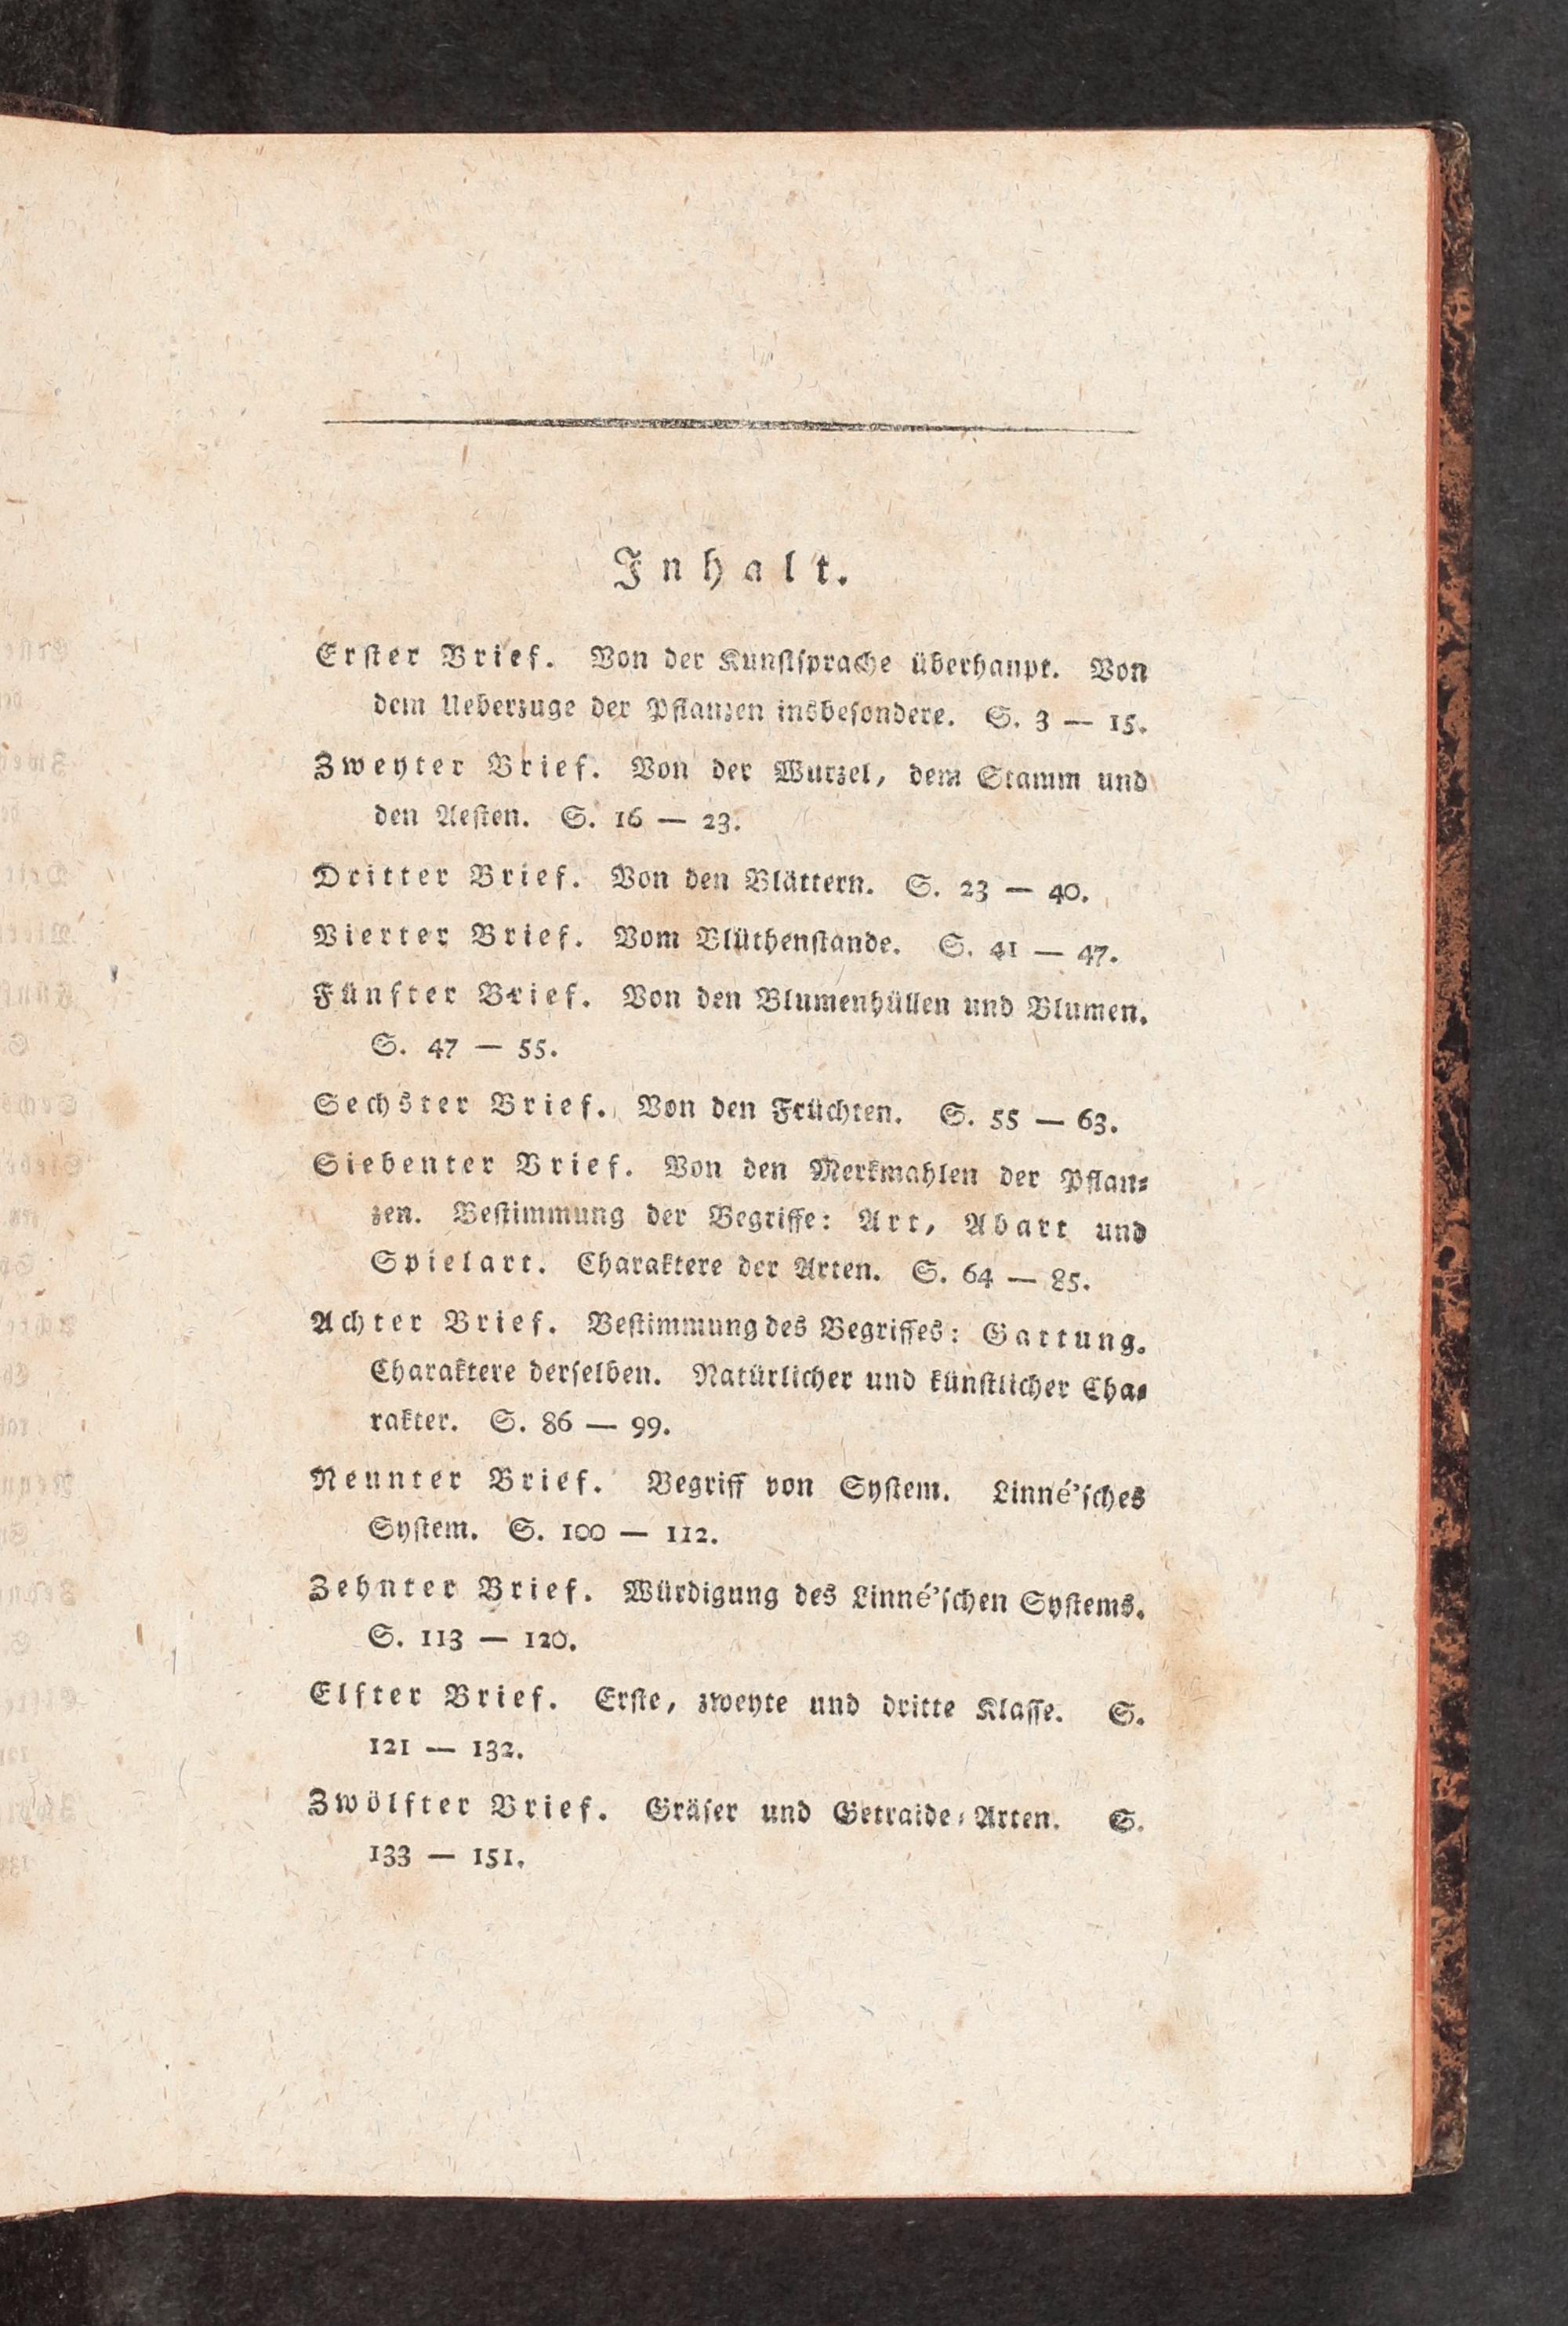 Inhalt.
Erster Brief. Von der Kunstsprache überhaupt. Von
dem Ueberzuge der Pflanzen insbesondere. S. 3 — 15.
Zweyter Brief. Von der Wurzel, dem Stamm und
den Aesten. S. 16 — 23.
Dritter Brief. Von den Blättern. S. 23 — 40.
Vierter Brief. Vom Blüthenstande. S. 41 — 47.
Fünfter Brief. Von den Blumenhüllen und Blumen.
S. 47 — 55.
Sechster Brief. Von den Früchten. S. 55 — 63.
Siebenter Brief. Von den Merkmahlen der Pflan⸗
zen. Bestimmung der Begriffe: Art, Abart und
Spielart. Charaktere der Arten. S. 64 — 85.
Achter Brief. Bestimmung des Begriffes: Gattung.
Charaktere derselben. Natürlicher und künstlicher Cha⸗
rakter. S. 86 — 99.
Neunter Brief. Begriff von System. Linné'sches
System. S. 100 — 112.
Zehnter Brief. Würdigung des Linné'schen Systems.
S. 113 — 120.
Elfter Brief. Erste, zweyte und dritte Klasse. S.
121 — 132.
Zwölfter Brief. Gräser und Getraide⸗Arten. S.
133 — 151.